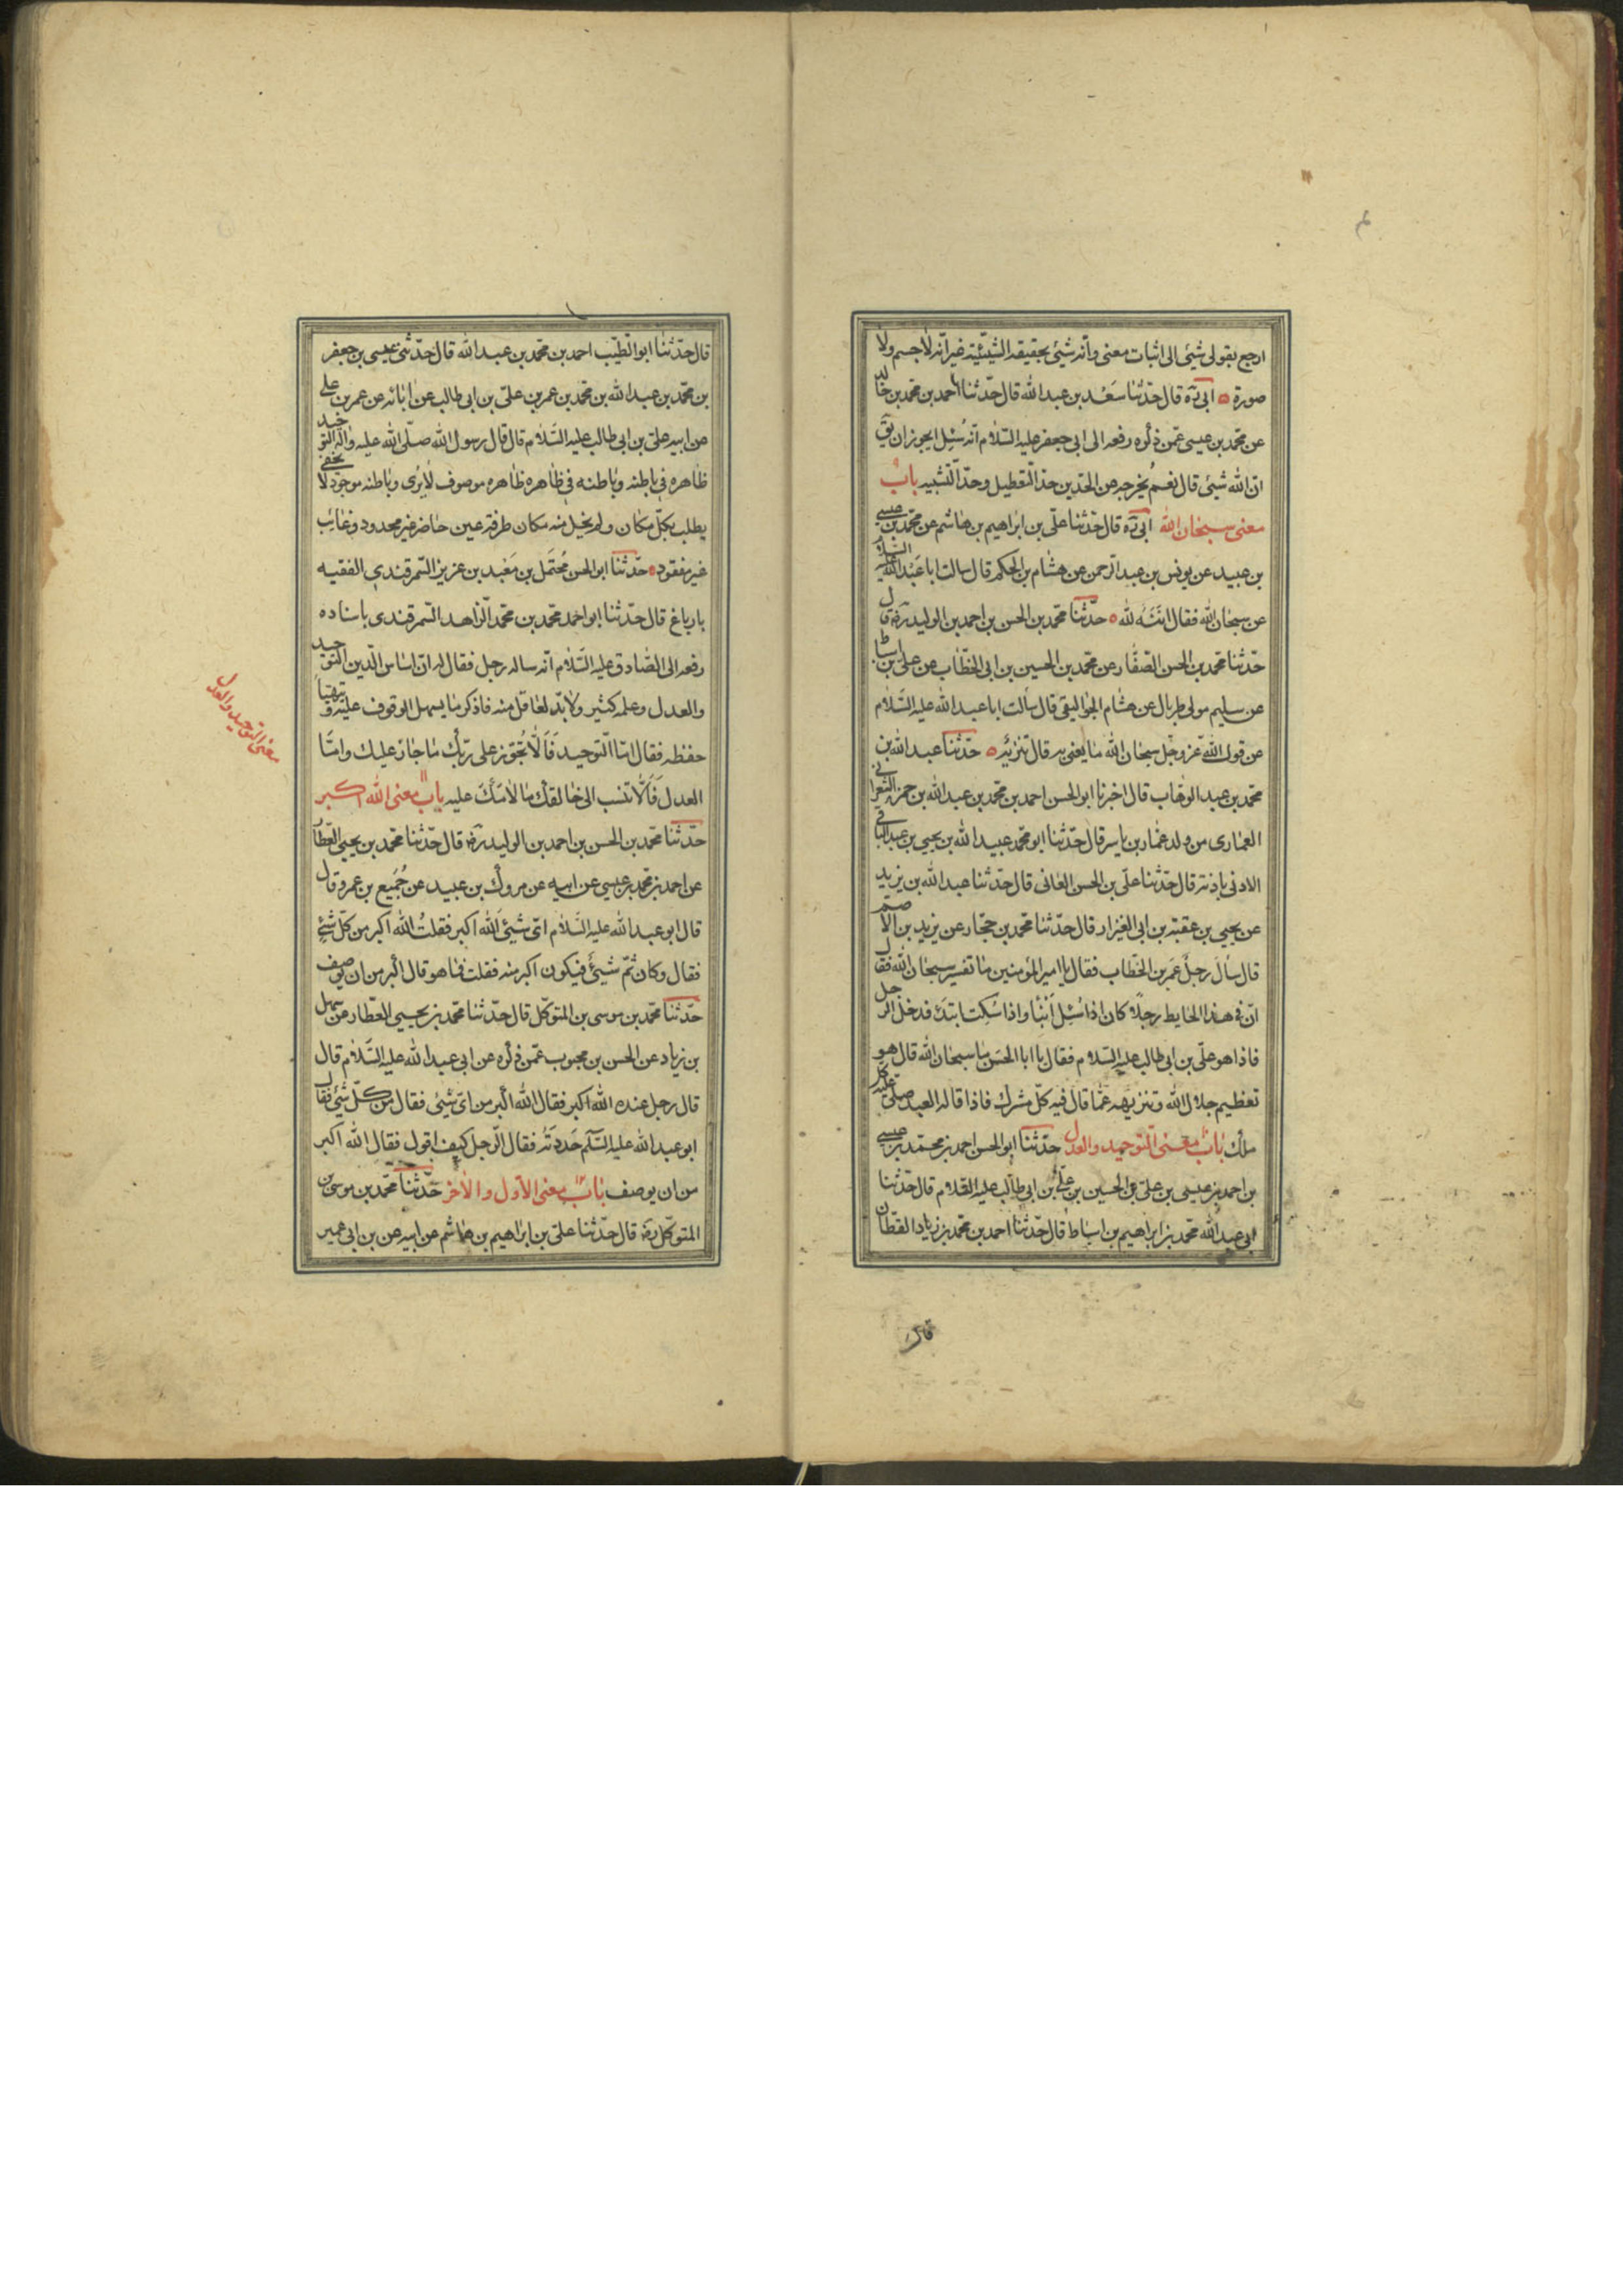 ارجع بقولی شیئ الی اثبات معنی وانّه شیئ بحقیقه الشیئیّته غیر انّه لا جسم ولا
صورة ابی رَه قال حدّثنا سَعْد بن عبد الله قال حدّثنا احمد بن محمد بن خالد
عن محمد بن عیسی عمّن ذکره رفعه الی ابی جعفر علیه السّلام انّه سُئِل ایجوز ان یق
انّ الله شیئ قال نعم یخرجه من الحدّین حدّ التّعطیل وحدّ التّشبیه باب
معنی سبحان الله ابی رَه قال حدّثنا علّی بن ابراهیم بن هاشم عن محمّد بن عیسی
بن عبید عن یونس بن عبد الرّحمن عن هشام بن الحکم قال سالت ابا عَبْد الله علیه السّلام
عن سبحان الله فقال انَفَه لله حدّثنا محمّد بن الحسن بن احمد بن الولید رَه قال
حدّثنا محمّد بن الحسن الصّفّار عن محمّد بن الحسین بن ابی الخطّاب عن علی بن اسباط
عن سلیم مولی طربال عن هشام الجوالیقی قال سَالت ابا عبد الله علیه السّلام
عن قول الله عزّ وجّل سبحان الله ما یعنی به قال تنزیه حدّثنا عبد الله بن
محمّد بن عبد الوهّاب قال اخبرنا ابو الحسن احمد بن محمّد بن عبد الله بن حمزه الشعرانی
العماری من ولد عمّار بن یاسر قال حدّثنا ابو محمّد عبید الله بن یحیی بن عبد الباقی
الادنی باذنته قال حدّثنا علّی بن الحسن العانی قال حدّثنا عبد الله بن یزید
عن یحیی بن عقبته بن ابی الغیزار قال حدّثنا محمّد بن حجّار عن یزید بن الاصم
قال سَال رجلُ عمَر بن الخطّاب فقال یا امیر المؤمنین ما تفسیر سبحان الله فقال
انّ فی هذا الحایط رجلاً کان اذا سُئِل اَنبَا واذا سُکِت ابتدَء فدخل الرجل
فاذا هو علّی بن ابی طالب علیه السّلام فقال یا ابا الحسَن ما سبحان الله قال هو
تعظیم جلال الله وتنزیهه عمّا قال فیه کلّ مشرك فاذا قاله العبد صلّی علیه کل
ملك باب معنی التّوحید والعدل حدّثنا ابو الحسن احمد بن محمّد بن عیسی
بن احمد بن عیسی بن علی بن الحسین بن علی بن ابی طالب علیه السّلام قال حدّثنا
ابی عبد الله محمّد بن ابراهیم بن اسباط قال حدّثنا احمد بن محمّد بن زیاد القطّان
قال
قال حدّثنا ابو الطّیّب احمد بن محمّد بن عبد الله قال حدّثنی عیسی بن جعفر
بن محمّد بن عبد الله بن محمّد بن عمر بن علّی بن ابی طالب عن ابائه عن عمر بن علی
عن ابیه علی بن ابی طالب علیه السّلام قال قال رسول الله صلّی الله علیه واله التوحید
ظاهره فی باطنه وباطنه فی ظاهره ظاهره موصوف لا یُری وباطنه موجود لا یخفی
یطلب بکلّ مکان ولم یخل منه مکان طرفة عین حاضر غیر محدود وغائب
غیر مفقود حدّثنا ابو الحسن مُحتَمل بن سَعْید بن عزیز السّمرقندی الفقیه
بارباغ قال حدّثنا ابو احمد محمّد بن محمّد الزّاهد السّمرقندی باسناده
رفعه الی الصّادق علیه السَّلام انّه ساله رجل فقال له انّ اساس الدّین التوحید
والعدل وعلمه کثیر ولا بدّ لعاقل منه فاذکر ما یسهل الوقوف علیه ویتهیّأ
حفظه فقال امّا التّوحید فَاَلّا تُجوّز علی ربّك ما جاز علیك وامّا
العدل فَاَلّا تنسب الی خالقك ما لامَكَ علیه باب معنی الله اکبر
حدّثنا محمّد بن الحسن بن احمد بن الولید رَه قال حدّثنا محمّد بن یحیی العّطار
عن احمد بن محمّد بن عیسی عن ابیه عن مروك بن عبید عن جُمَیع بن عمرو قال
قال ابو عبد الله علیه السّلام ایّ شیئ الله اکبر فقلتُ الله اکبر من کلّ شیئ
فقال وکان ثمّ شیئ فیکون اکبر منه فقلت فما هو قال اکبر من ان یوصف
حدّثنا محمّد بن موسی بن المتوکّل قال حدّثنا محمّد بن یحیی العطّار عن سهل
بن زیاد عن الحسن بن محبوب عمّن ذکره عن ابی عبد الله علیه السّلام قال
قال رجل عنده الله اکبر فقال الله اکبر من ایّ شیئ فقال من کلّ شیئ فقال
ابو عبد الله علیه السّلم حَددتَه فقال الرّجل کیف اقول فقال الله اکبر
من ان یوصف باب معنی الاوّل والاخر حدّثنا محمّد بن موسی بن
المتوکّل رَه قال حدّثنا علی بن ابراهیم بن هاشم عن ابیه عن بن ابی عمیر
معنی التوحید والعدل